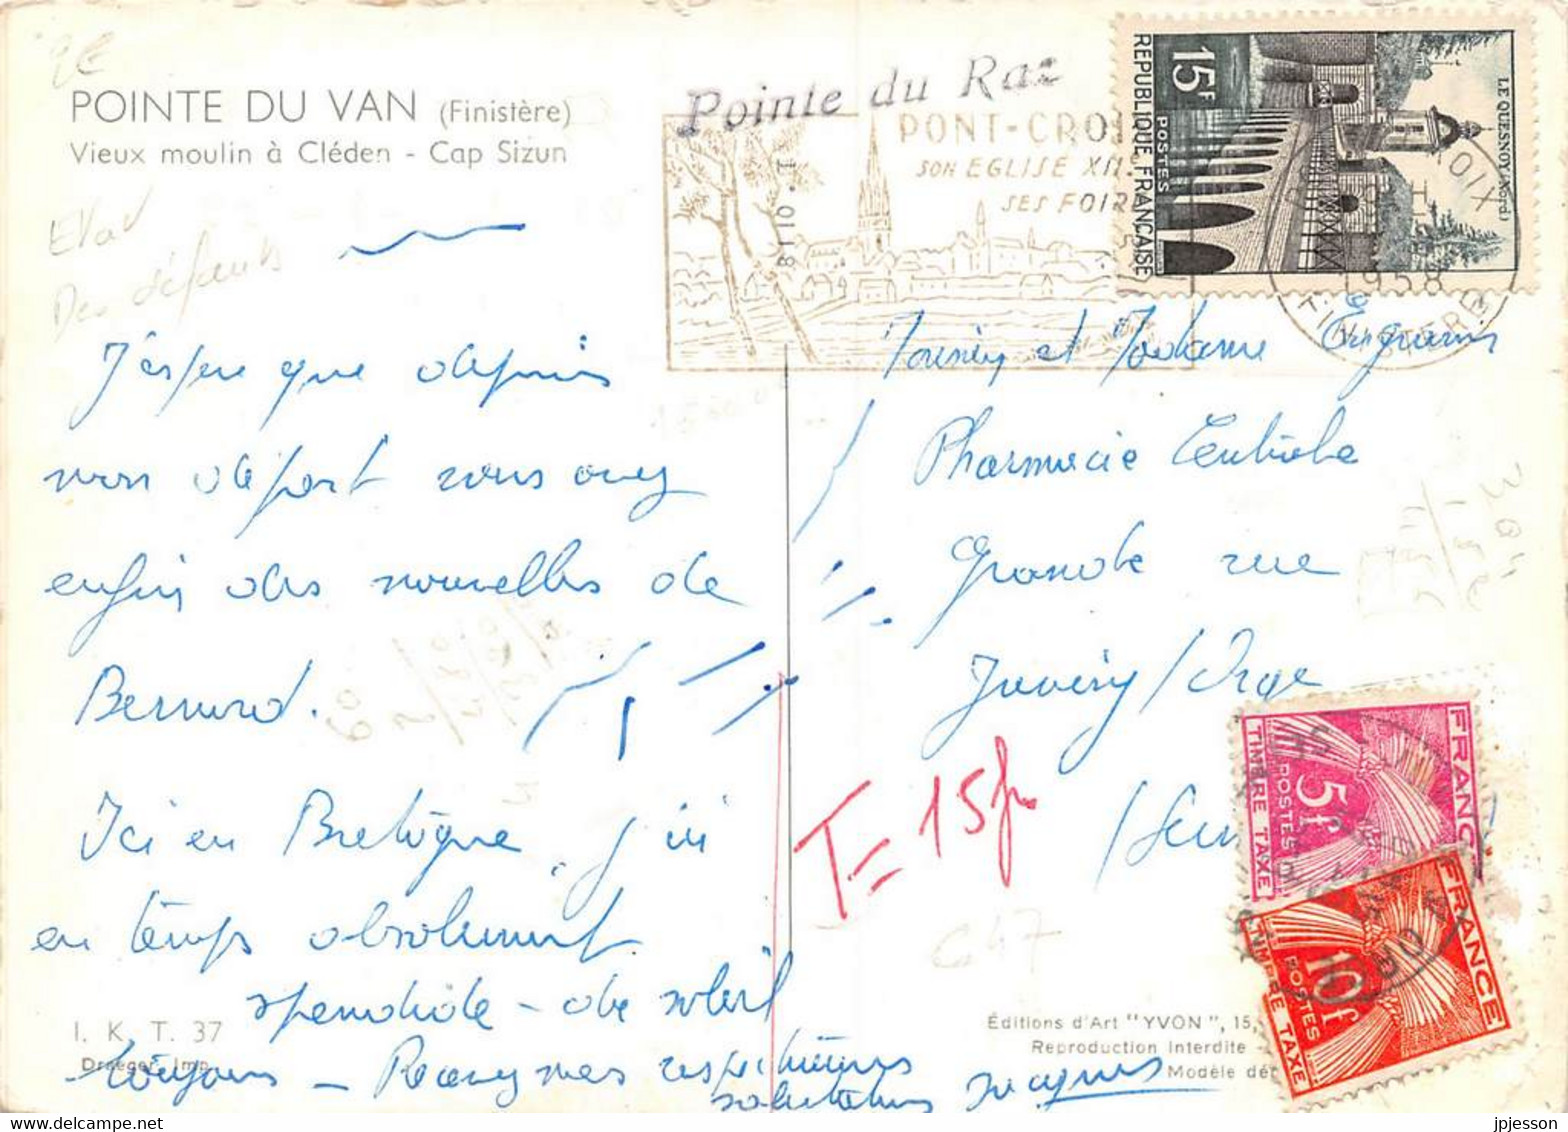 POINTE DU VAN (Finistère)
Vieux moulin à Cléden - Cap Sizun
Etat
Des défauts
J'espère que depuis
mon départ vous avez
enfin des nouvelles de
Bernard.
Ici en Bretagne, j'ai
un temps absolument
splendide - du soleil
toujours - Recevez mes respectueuses
salutations Jacques
I. K. T. 37
Draeger, Imp.
Pointe du Raz
PONT-CROIX
SON EGLISE XII
SES FOIRE
15F
REPUBLIQUE FRANÇAISE
POSTES
LE QUESNOY (Nord)
1958
FINISTERE
Monsieur et Madame
Pharmacie Centrale
Grande rue
Juvisy / Orge
(Seine
T = 15f
647
FRANCE
5F
POSTES
TIMBRE TAXE
FRANCE
10F
POSTES
TIMBRE TAXE
Éditions d'Art "YVON", 15,
Reproduction Interdite
Modèle dé
jpjesson